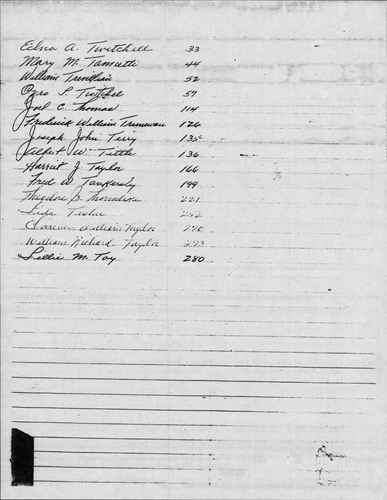 Edna A. Twitchell 33
Mary M. 44
William 52
Ozro S. Twitchel 57
Joel C. Thomas 114
Frederick William 126
Joseph John Terry 135
Albert W. Tittle 136
Harriet J. Taylor 166
Fred W. Tankersly 199
Theodore B. Thorndike 221
Leila 252
Clarence William Taylor 270
William Richard Taylor 273
Lillie M. Toy 280